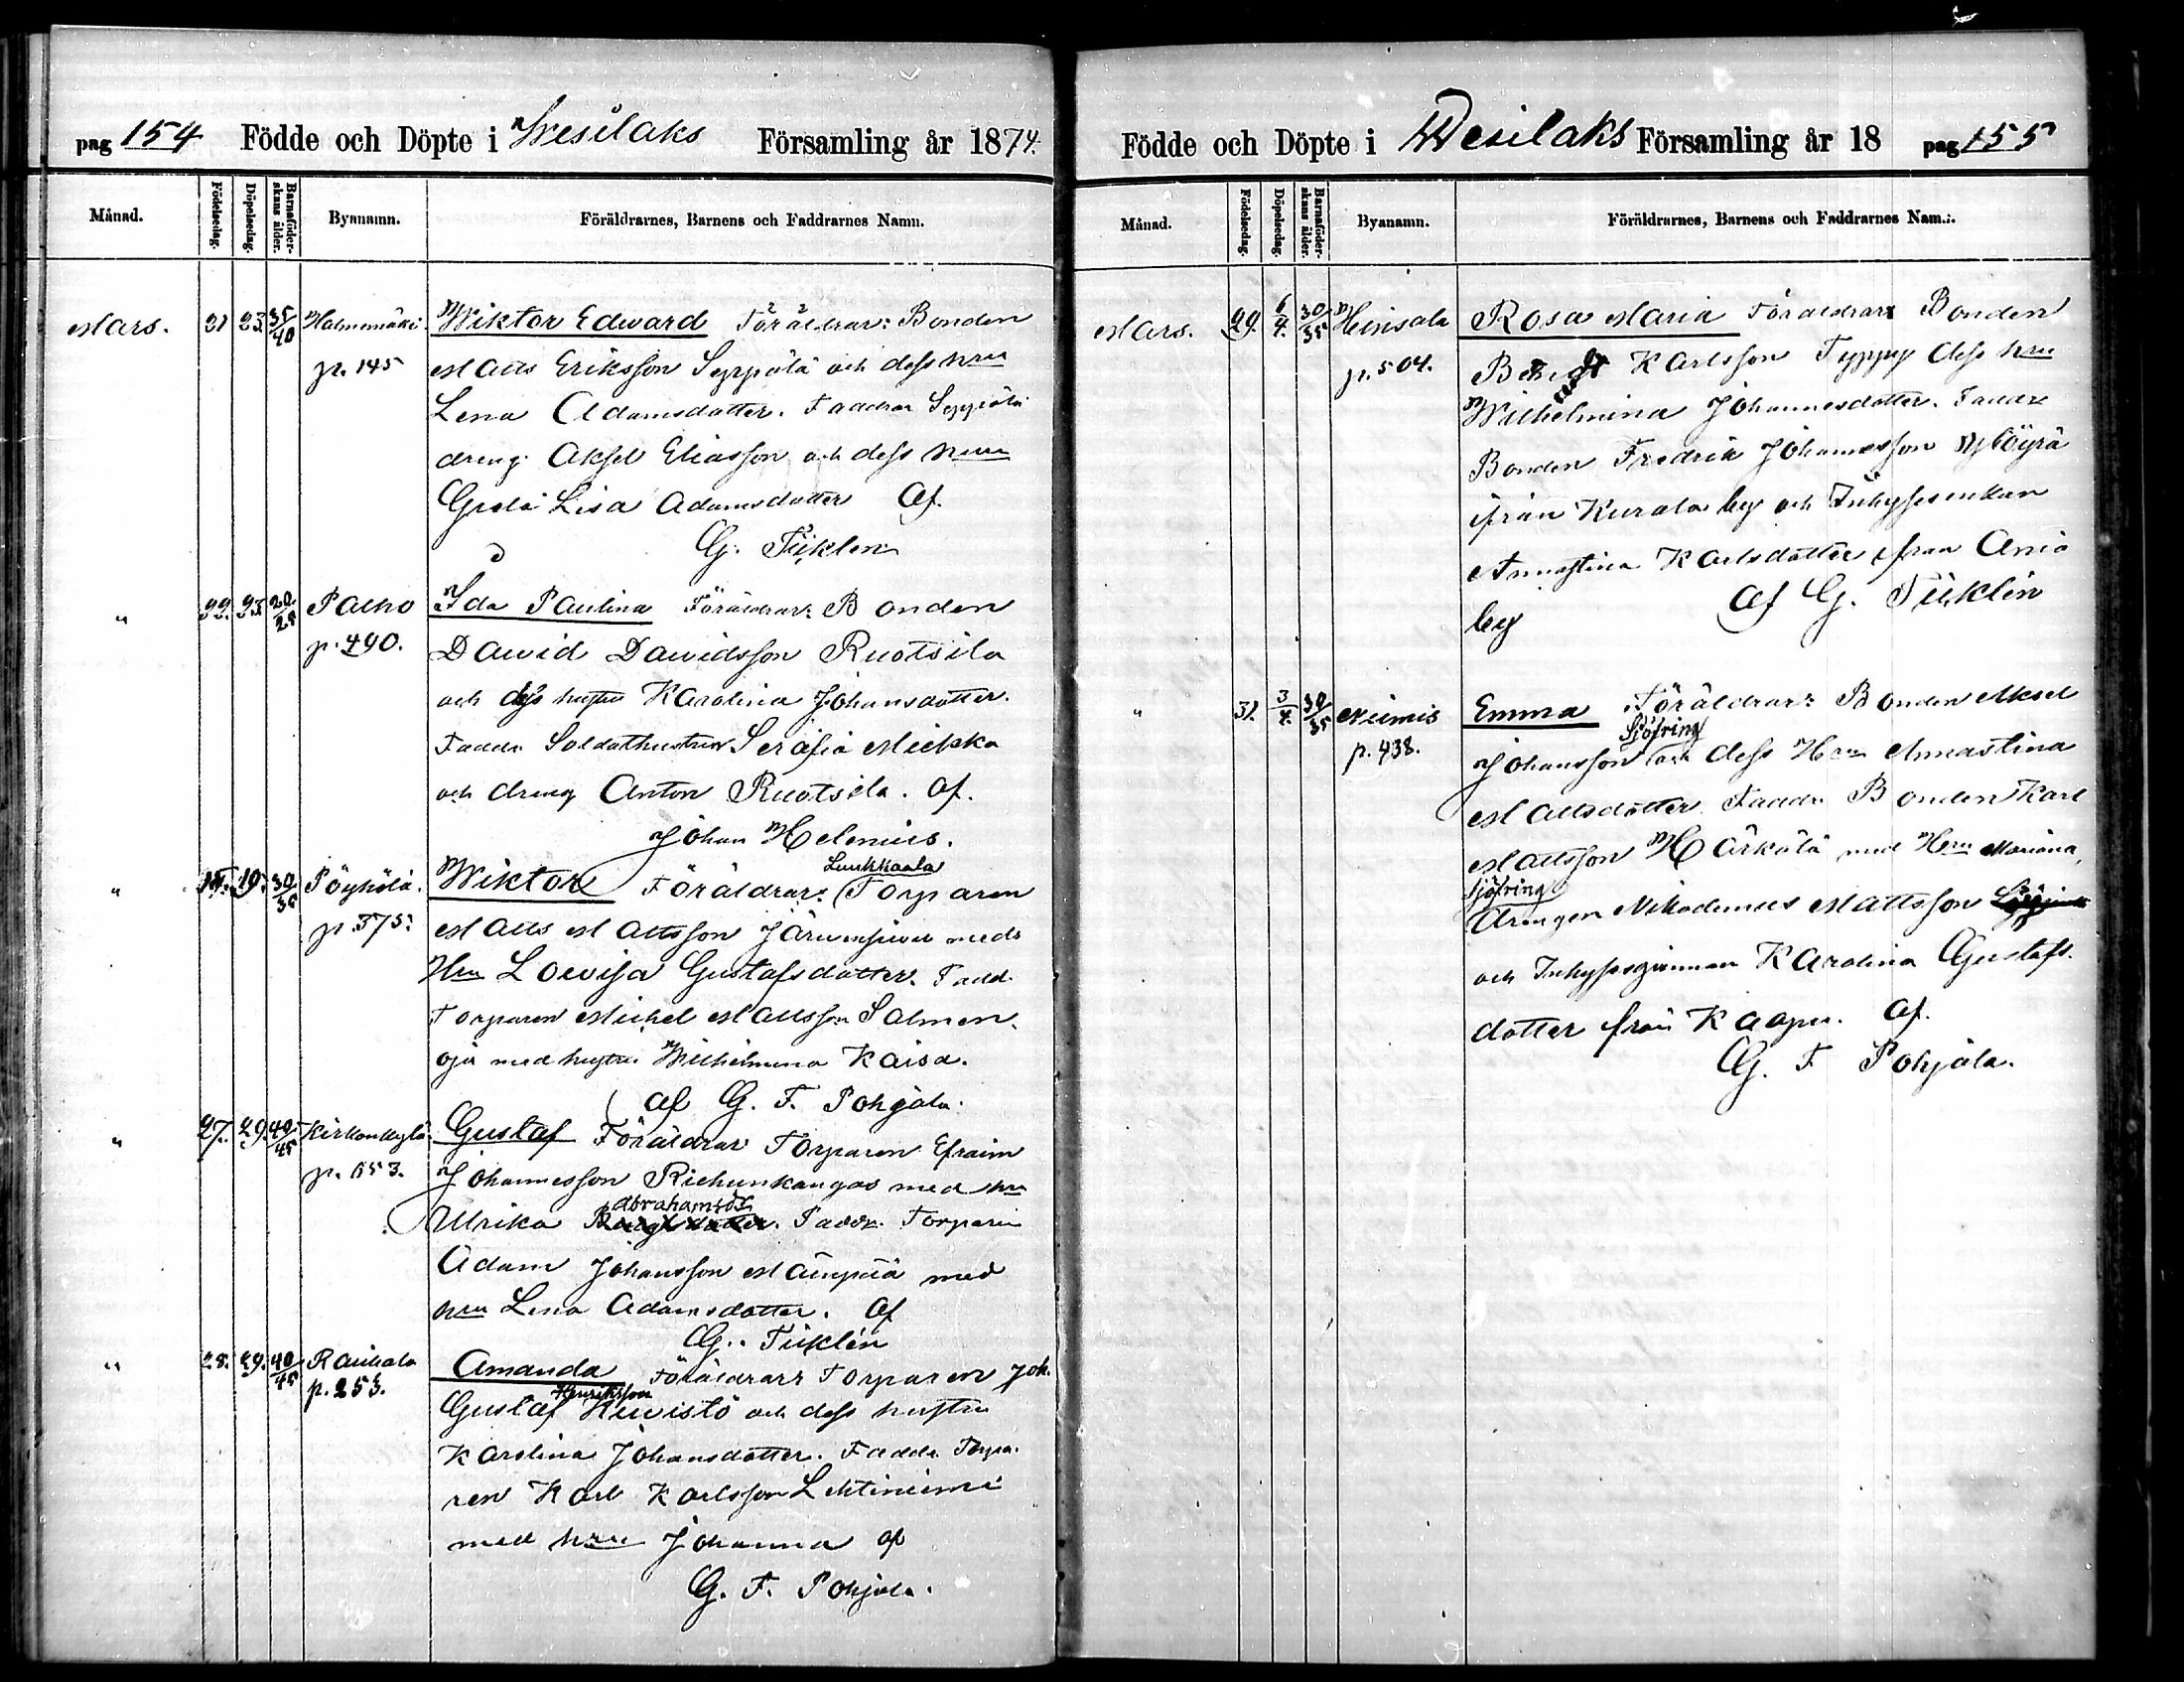 pag 154 Födde och Döpte i Wesilaks Församling år 1874.
Månad. Födelsedag. Döpelsedag. Barnaföderskans ålder. Byanamn. Föräldrarnes, Barnens och Faddrarnes Namn.
Mars. 21 23. 35/40 Halmemäki Wiktor Edward Föräldrar: Bonden
p. 145 Matts Eriksson Seppälä och dess hru
Lena Adamsdotter. Faddrar Seppälä
dreng Aksel Eliasson och dess hru
Greta Lisa Adamsdotter Af.
G. Fiiklen
" 22. 23. 20/25 Palho Ida Paulina Föräldrar: Bonden
p. 490. Dawid Dawidsson Ruotsila
och dess hustru Karolina Johansdotter.
Faddr. Soldathustrun Serafia
och dreng Anton Ruotsila. Af.
Johan Helenius.
Luukkaala
" 19. 30/35 Pöyhölä. Wiktor Föräldrar: (Torparen
p. 375. Matts Mattsson Järvensivu med
Hru Lovisa Gustafsdotter. Fadd.
Torparen Michel Mattsson Salmen-
oja med hustru Wilhelmina Kaisa.
af G. F. Pohjala.
" 27. 29. 40/45 Kirkonkylä Gustaf Föräldrar Torparen Efraim
p. 653. Johannesson Riehunkangas med hru
Abrahamsdr
Ulrika Faddr. Torparen
Adam Johansson Mäenpää med
hru Lena Adamsdotter. Af
G. Fiiklén
" 28. 29. 40/45 Rauhala Amanda Föräldrar: Torparen Joh.
p. 253. Henriksson
Gustaf Kuivistö och dess hustru
Karolina Johansdotter. Faddr. Torpa-
ren Karl Karlsson Lehtiniemi
med hru Johanna af
G. F. Pohjala.
Födde och Döpte i Wesilaks Församling år 18 pag 155
Månad. Födelsedag. Döpelsedag. Barnaföderskans ålder. Byanamn. Föräldrarnes, Barnens och Faddrarnes Namn.
Mars. 29. 6/4. 30/35 Hinsala Rosa Maria Föräldrar: Bonden
p. 504. Karlsson Typpy dess hru
Wilhelmina Johannesdotter. Faddr
Bonden Fredrik Johannesson Nöyrä
ifrån Kurala by och Inhysesenkan
Annastina Karlsdotter från Ania
by Af G. Fiiklén
" 31. 3/4. 30/35 Niemis Emma Föräldrar: Bonden Aksel
p. 438. Sjöfring
Johansson och dess Hru Annastina
Mattsdotter Faddr. Bonden Karl
Mattsson Härkälä med Hru Mariana,
Sjöfring
drengen Nikodemus Mattsson
och Inhysesqvinnan Karolina Gustafs-
dotter från Kaapu. Af.
G. F Pohjala.